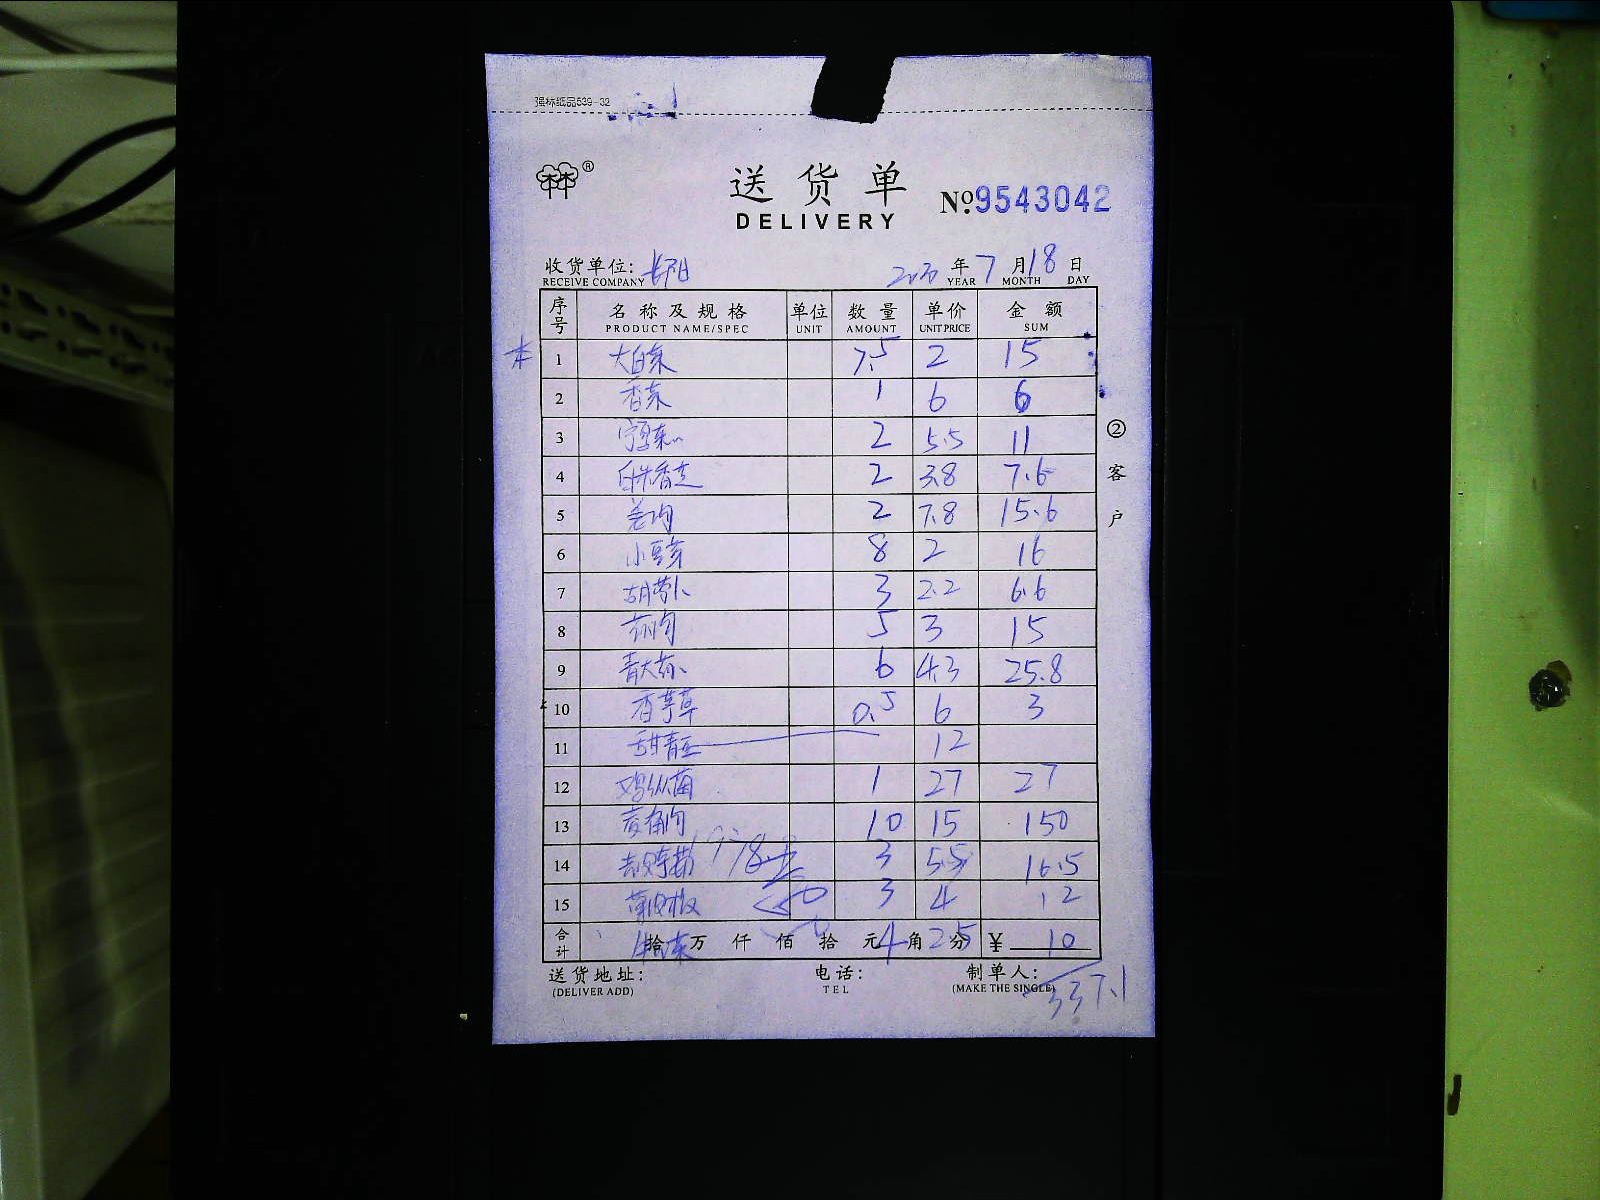 强标纸品539-32
送货单 No.9543042
DELIVERY
收货单位: 年 7 月 18 日
RECEIVE COMPANY YEAR MONTH DAY
序号 名称及规格 单位 数量 单价 金额
PRODUCT NAME/SPEC UNIT AMOUNT UNIT PRICE SUM
1 大白菜 7.5 2 15
2 香菜 1 6 6
3 2 5.5 11
4 2 3.8 7.6
5 2 7.8 15.6
6 小豆芽 8 2 16
7 胡萝卜 3 2.2 6.6
8 5 3 15
9 6 4.3 25.8
10 香芋草 0.5 6 3
11 甜青豆 12
12 鸡纵菌 1 27 27
13 10 15 150
14 3 5.5 16.5
15 3 4 12
合计 拾 万 仟 佰 拾 元 4 角 2.5 分 ¥ 10
②客户
送货地址: 电话: 制单人:
(DELIVER ADD) TEL (MAKE THE SINGLE)
337.1